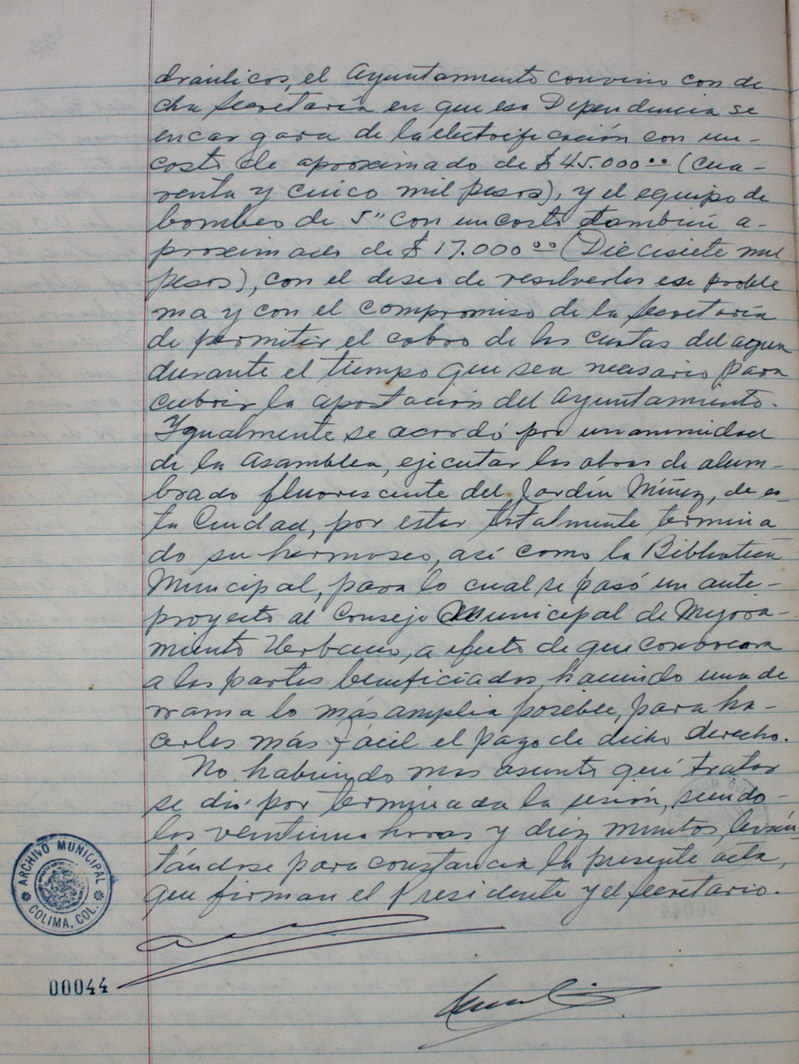 dráulicos, el Ayuntamiento convino con di
cha Secretaría en que esa Dependencia se
encargara de la electrificación con un
costo de aproximado de $45.000°° (Cua-
renta y cinco mil pesos), y el equipo de
bombeo de 5" con un costo también a-
proximado de $17.000°° (Diecisiete mil
pesos), con el deseo de resolverles ese proble
ma y con el compromiso de la Secretaría
de permitir el cobro de las cuotas del agua
durante el tiempo que sea necesario para
cubrir la aportación del Ayuntamiento.
Igualmente se acordó por unanimidad
de la Asamblea, ejecutar las obras de alum-
brado fluorescente del Jardín Núñez, de es
ta Ciudad, por estar totalmente termina
do su hermoseo, así como la Biblioteca
Municipal, para lo cual se pasó un ante-
proyecto al Consejo Municipal de Mejora-
miento Urbano, a efecto de que convocara
a las partes beneficiadas, haciendo una de
rrama lo más amplia posible, para ha-
cerles más fácil el pago de dicho derecho.
No habiendo mas asunto qué tratar
se dió por terminada la sesión, siendo-
las veintiuna horas y diez minutos, levan-
tándose para constancia la presente acta,
que firman el Presidente y el Secretario.
ARCHIVO MUNICIPAL
COLIMA, COL.
00044